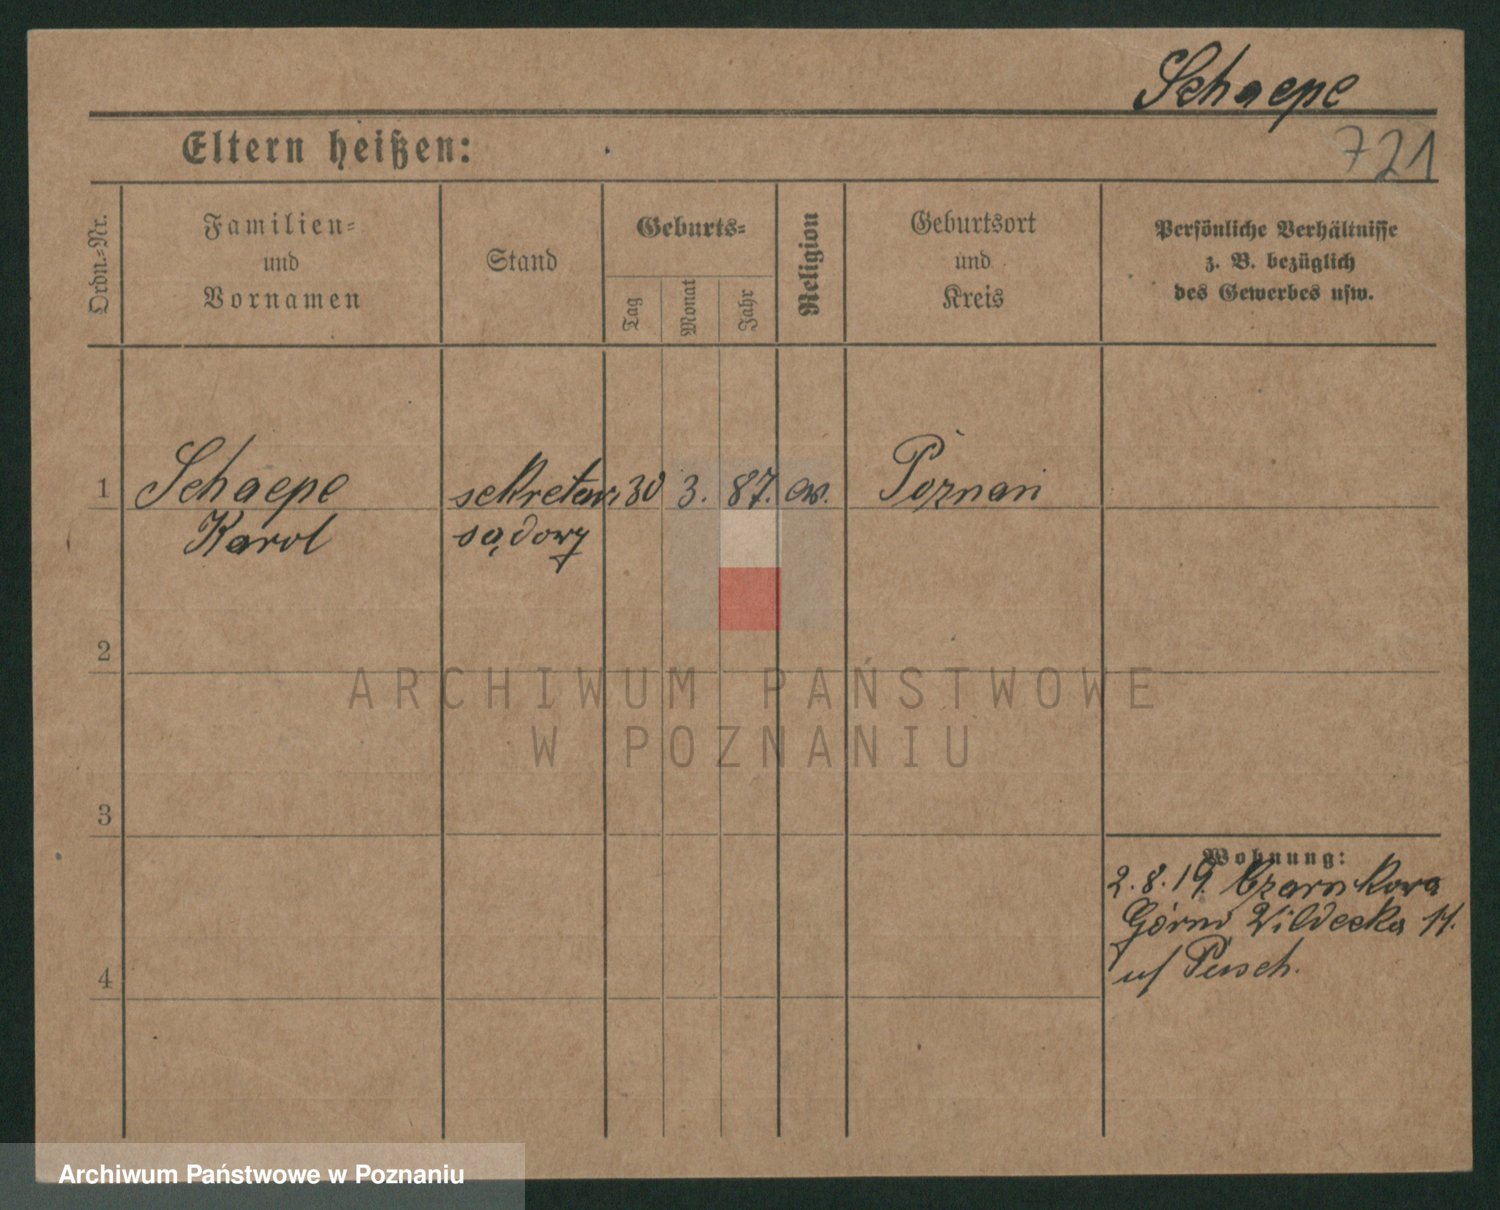 Schaepe
721
Eltern heißen:
Ordn.=Nr.
Familien=
und
Vornamen
Stand
Geburts=
Tag
Monat
Jahr
Religion
Geburtsort
und
Kreis
Persönliche Verhältnisse
z. B. bezüglich
des Gewerbes usw.
1 Schaepe sekretarz 30 3. 87. ew. Poznań
Karol sądowy
2
3
4
Wohnung:
2.8.19.
Górna Wildecka
u/ Pusch.
ARCHIWUM PAŃSTWOWE
W POZNANIU
Archiwum Państwowe w Poznaniu